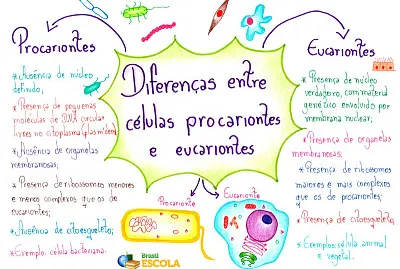 Procariontes
* Ausência de núcleo
definido;
* Presença de pequenas
moléculas de DNA circular
livres no citoplasma (plasmídeos);
* Ausência de organelas
membranosas;
* Presença de ribossomos menores
e menos complexos que os de
eucariontes;
* Ausência de citoesqueleto;
* Exemplo: célula bacteriana.
Diferenças entre
células procariontes
e eucariontes
Eucariontes
* Presença de núcleo
verdadeiro, com material
genético envolvido por
membrana nuclear;
* Presença de organelas
membranosas;
* Presença de ribossomos
maiores e mais complexos
que os de procariontes;
* Presença de citoesqueleto;
* Exemplos: célula animal
e vegetal.
Procarionte
Eucarionte
Brasil
ESCOLA